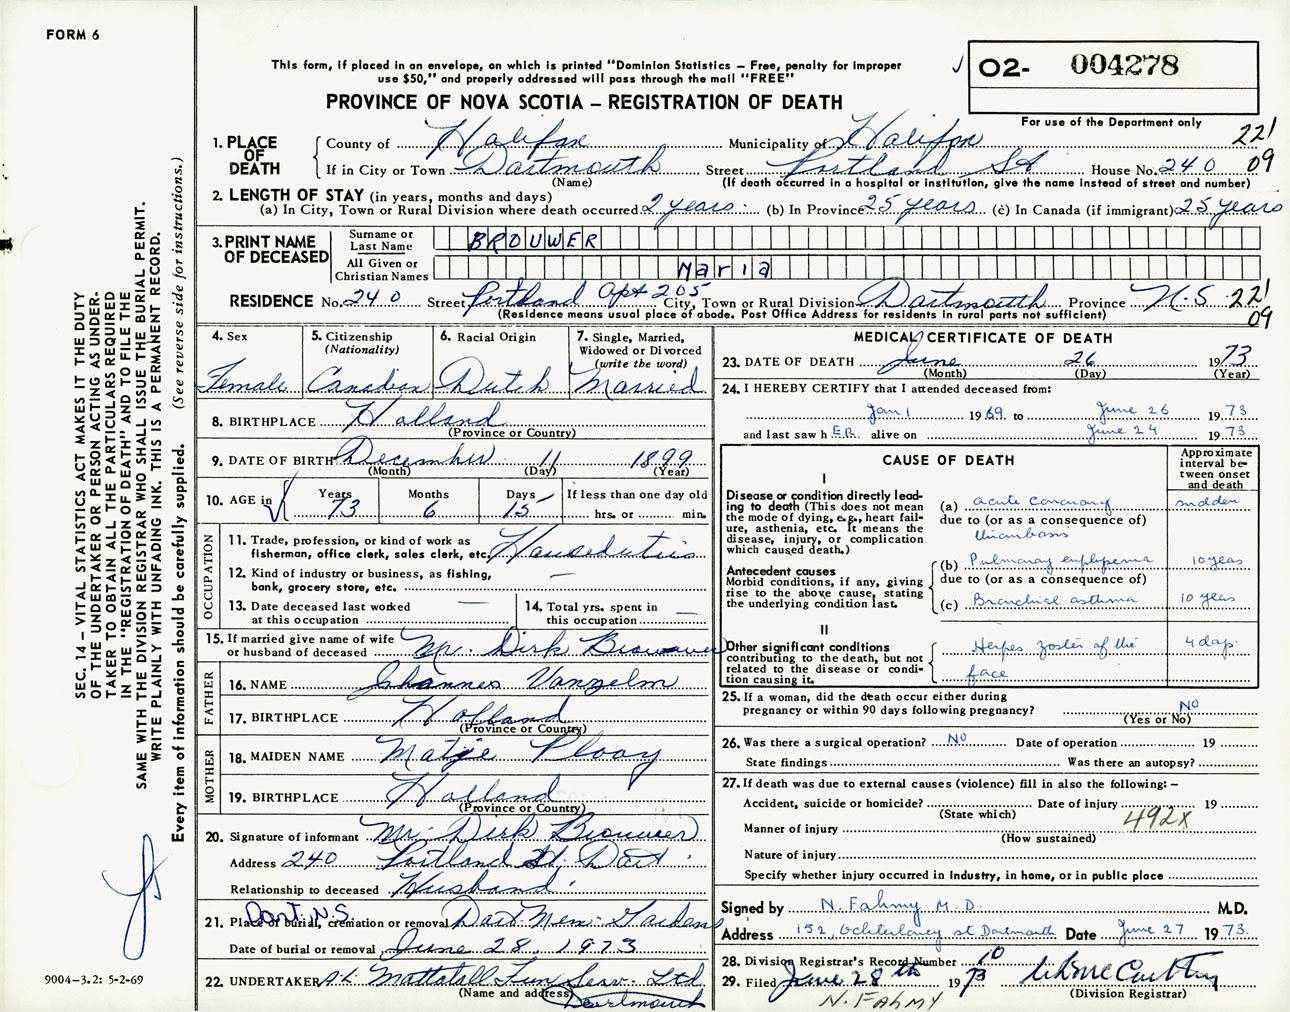 FORM 6
This form, if placed in an envelope, on which is printed "Dominion Statistics – Free, penalty for improper
use $50," and properly addressed will pass through the mail "FREE"
PROVINCE OF NOVA SCOTIA – REGISTRATION OF DEATH
02- 004278
For use of the Department only
221
09
1. PLACE OF DEATH
County of Halifax Municipality of Halifax
If in City or Town Dartmouth Street Portland St House No. 240
(Name) (If death occurred in a hospital or institution, give the name instead of street and number)
2. LENGTH OF STAY (in years, months and days)
(a) In City, Town or Rural Division where death occurred 2 years (b) In Province 25 years (c) In Canada (if immigrant) 25 years
3. PRINT NAME OF DECEASED
Surname or Last Name BROUWER
All Given or Christian Names Maria
RESIDENCE No. 240 Street Portland Apt 205 City, Town or Rural Division Dartmouth Province N.S 221
09
(Residence means usual place of abode. Post Office Address for residents in rural parts not sufficient)
4. Sex
Female
5. Citizenship (Nationality)
Canadian
6. Racial Origin
Dutch
7. Single, Married, Widowed or Divorced (write the word)
Married
8. BIRTHPLACE Holland
(Province or Country)
9. DATE OF BIRTH December 11 1899
(Month) (Day) (Year)
10. AGE in Years 73 Months 6 Days 15 If less than one day old
hrs. or min.
OCCUPATION
11. Trade, profession, or kind of work as
fisherman, office clerk, sales clerk, etc. Houseduties
12. Kind of industry or business, as fishing,
bank, grocery store, etc. —
13. Date deceased last worked
at this occupation —
14. Total yrs. spent in
this occupation —
15. If married give name of wife
or husband of deceased Mr. Dirk Brouwer
FATHER
16. NAME Johannes Vanzelm
17. BIRTHPLACE Holland
(Province or Country)
MOTHER
18. MAIDEN NAME Matje Plooy
19. BIRTHPLACE Holland
(Province or Country)
20. Signature of informant Mr. Dirk Brouwer
Address 240 Portland St. Dart.
Relationship to deceased Husband
21. Place of burial, cremation or removal Dart Mem. Gardens
Dart, N.S.
Date of burial or removal June 28, 1973
22. UNDERTAKER A.L. Mattatall Fun Serv. Ltd
(Name and address) Dartmouth
MEDICAL CERTIFICATE OF DEATH
23. DATE OF DEATH June 26 1973
(Month) (Day) (Year)
24. I HEREBY CERTIFY that I attended deceased from:
Jan 1 1969 to June 26 1973
and last saw h ER alive on June 24 1973
CAUSE OF DEATH
Approximate interval between onset and death
I
Disease or condition directly lead-
ing to death (This does not mean
the mode of dying, e.g., heart fail-
ure, asthenia, etc. It means the
disease, injury, or complication
which caused death.)
(a) acute coronary sudden
due to (or as a consequence of)
thrombosis
Antecedent causes
Morbid conditions, if any, giving
rise to the above cause, stating
the underlying condition last.
(b) Pulmonary emphysema 10 years
due to (or as a consequence of)
(c) Bronchial asthma 10 years
II
Other significant conditions
contributing to the death, but not
related to the disease or condi-
tion causing it.
Herpes zoster of the 4 days
face
25. If a woman, did the death occur either during
pregnancy or within 90 days following pregnancy? NO
(Yes or No)
26. Was there a surgical operation? NO Date of operation 19
State findings Was there an autopsy?
27. If death was due to external causes (violence) fill in also the following: –
Accident, suicide or homicide? Date of injury 19
(State which) 492X
Manner of injury
(How sustained)
Nature of injury
Specify whether injury occurred in industry, in home, or in public place
Signed by N. Fahmy M.D. M.D.
Address 152, Ochterloney st Dartmouth Date June 27 1973
28. Division Registrar's Record Number 10
29. Filed June 28th 1973
(Division Registrar)
N. FAHMY
SEC. 14 – VITAL STATISTICS ACT MAKES IT THE DUTY
OF THE UNDERTAKER OR PERSON ACTING AS UNDER-
TAKER TO OBTAIN ALL THE PARTICULARS REQUIRED
IN THE "REGISTRATION OF DEATH" AND TO FILE THE
SAME WITH THE DIVISION REGISTRAR WHO SHALL ISSUE THE BURIAL PERMIT.
WRITE PLAINLY WITH UNFADING INK. THIS IS A PERMANENT RECORD.
Every item of information should be carefully supplied. (See reverse side for instructions.)
9004–3.2: 5-2-69